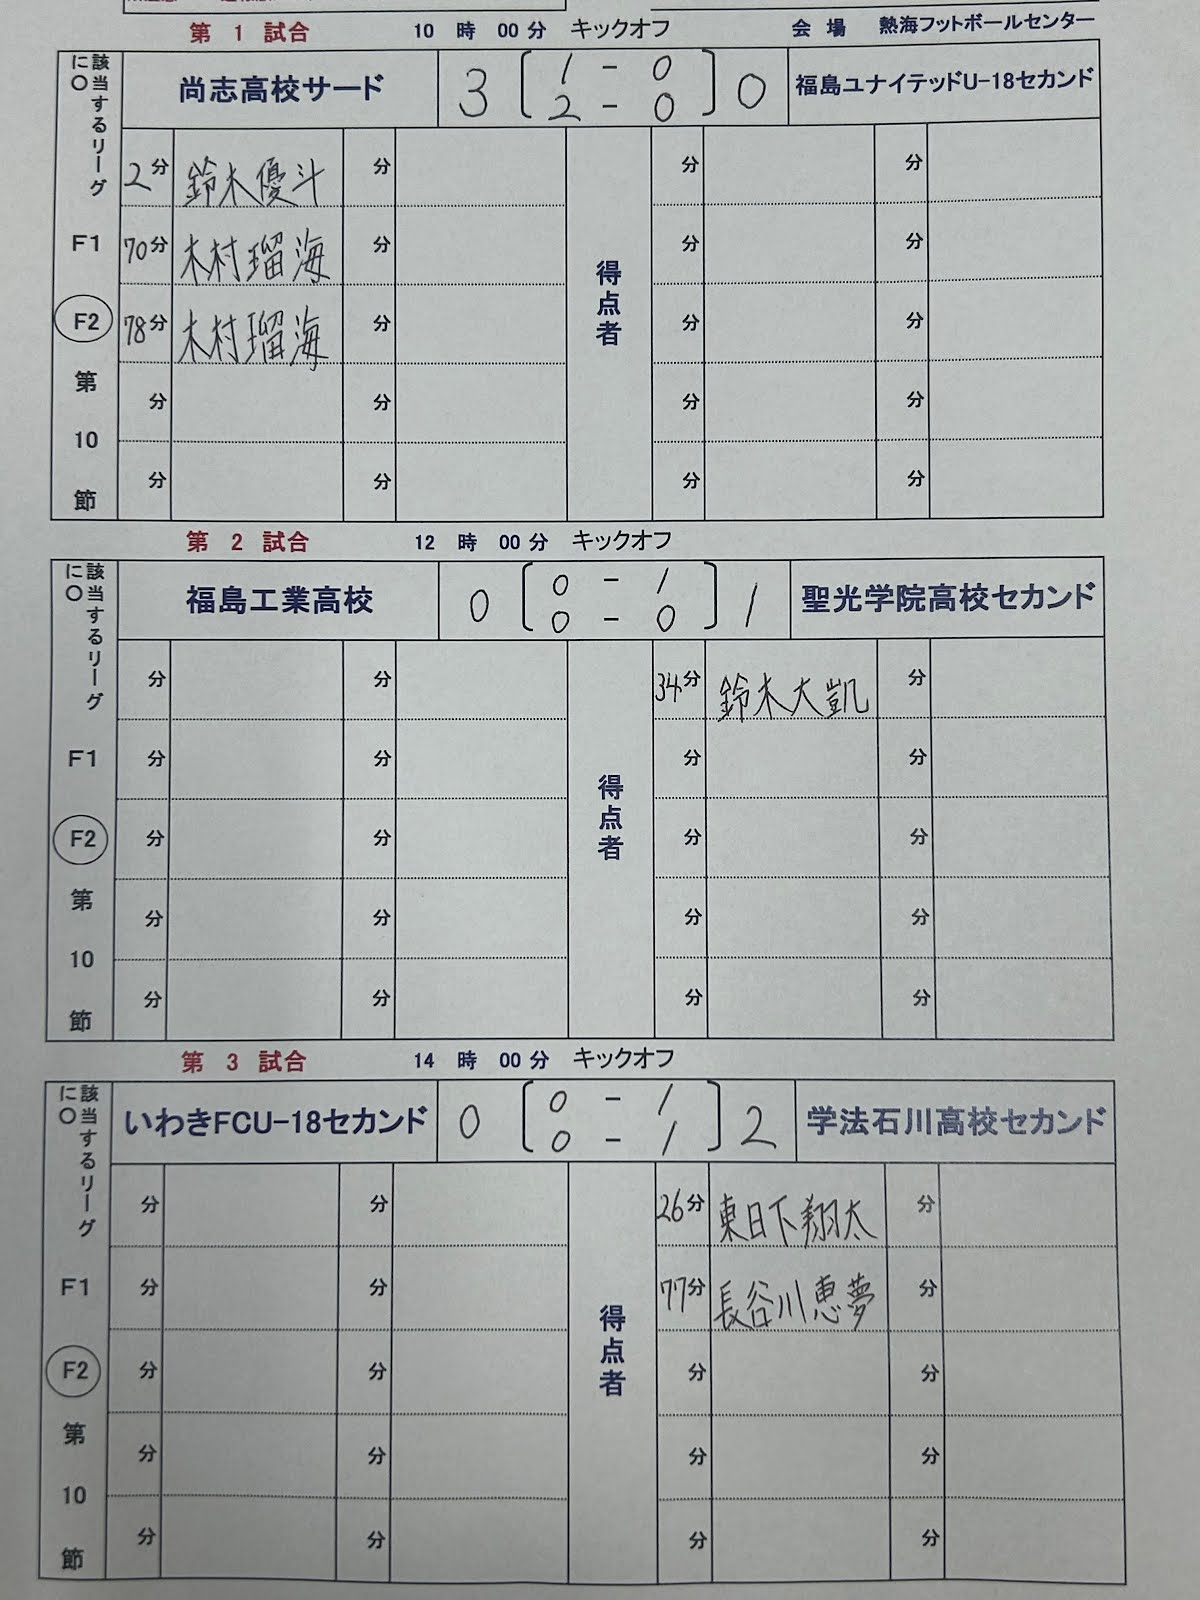 第 1 試合 10 時 00 分 キックオフ 会 場 熱海フットボールセンター
該当するリーグに〇
尚志高校サード 3 [ 1 - 0 福島ユナイテッドU-18セカンド
2 - 0 ] 0
2分 鈴木優斗 分 分 分
F1 70分 木村瑠海 分 得点者 分 分
F2 78分 木村瑠海 分 分 分
第 分 分 分 分
10
節 分 分 分 分
第 2 試合 12 時 00 分 キックオフ
該当するリーグに〇
福島工業高校 0 [ 0 - 1 聖光学院高校セカンド
0 - 0 ] 1
分 分 34分 鈴木大凱 分
F1 分 分 得点者 分 分
F2 分 分 分 分
第 分 分 分 分
10
節 分 分 分 分
第 3 試合 14 時 00 分 キックオフ
該当するリーグに〇
いわきFCU-18セカンド 0 [ 0 - 1 ] 2 学法石川高校セカンド
0 - 1
分 分 26分 東日下翔太 分
F1 分 分 77分 長谷川恵夢 分
F2 分 分 得点者 分 分
第 分 分 分 分
10
節 分 分 分 分